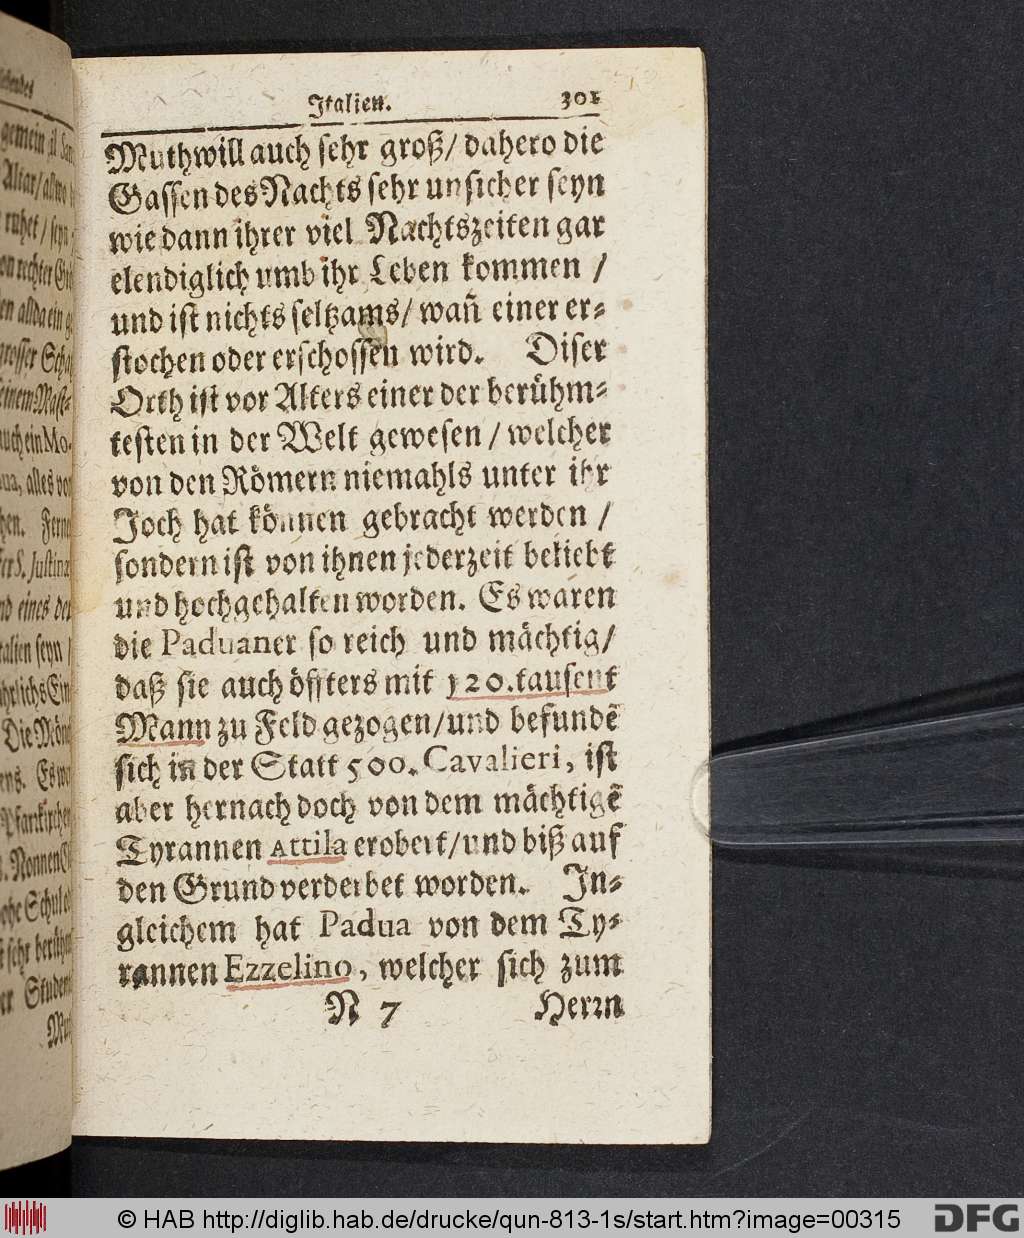 Italien. 301
Muthwill auch sehr groß/ dahero die
Gassen des Nachts sehr unsicher seyn
wie dann ihrer viel Nachtszeiten gar
elendiglich umb ihr Leben kommen /
und ist nichts seltzams/ wañ einer er-
stochen oder erschossen wird. Diser
Orth ist vor Alters einer der berühm-
testen in der Welt gewesen / welcher
von den Römern niemahls unter ihr
Joch hat können gebracht werden /
sondern ist von ihnen jederzeit beliebt
und hochgehalten worden. Es waren
die Paduaner so reich und mächtig/
daß sie auch öffters mit 120. tausent
Mann zu Feld gezogen/ und befundē
sich in der Statt 500. Cavalieri, ist
aber hernach doch von dem mächtigē
Tyrannen Attila erobert/ und biß auf
den Grund verderbet worden. In-
gleichem hat Padua von dem Ty-
rannen Ezzelino, welcher sich zum
N 7 Herrn
© HAB http://diglib.hab.de/drucke/qun-813-1s/start.htm?image=00315
DFG